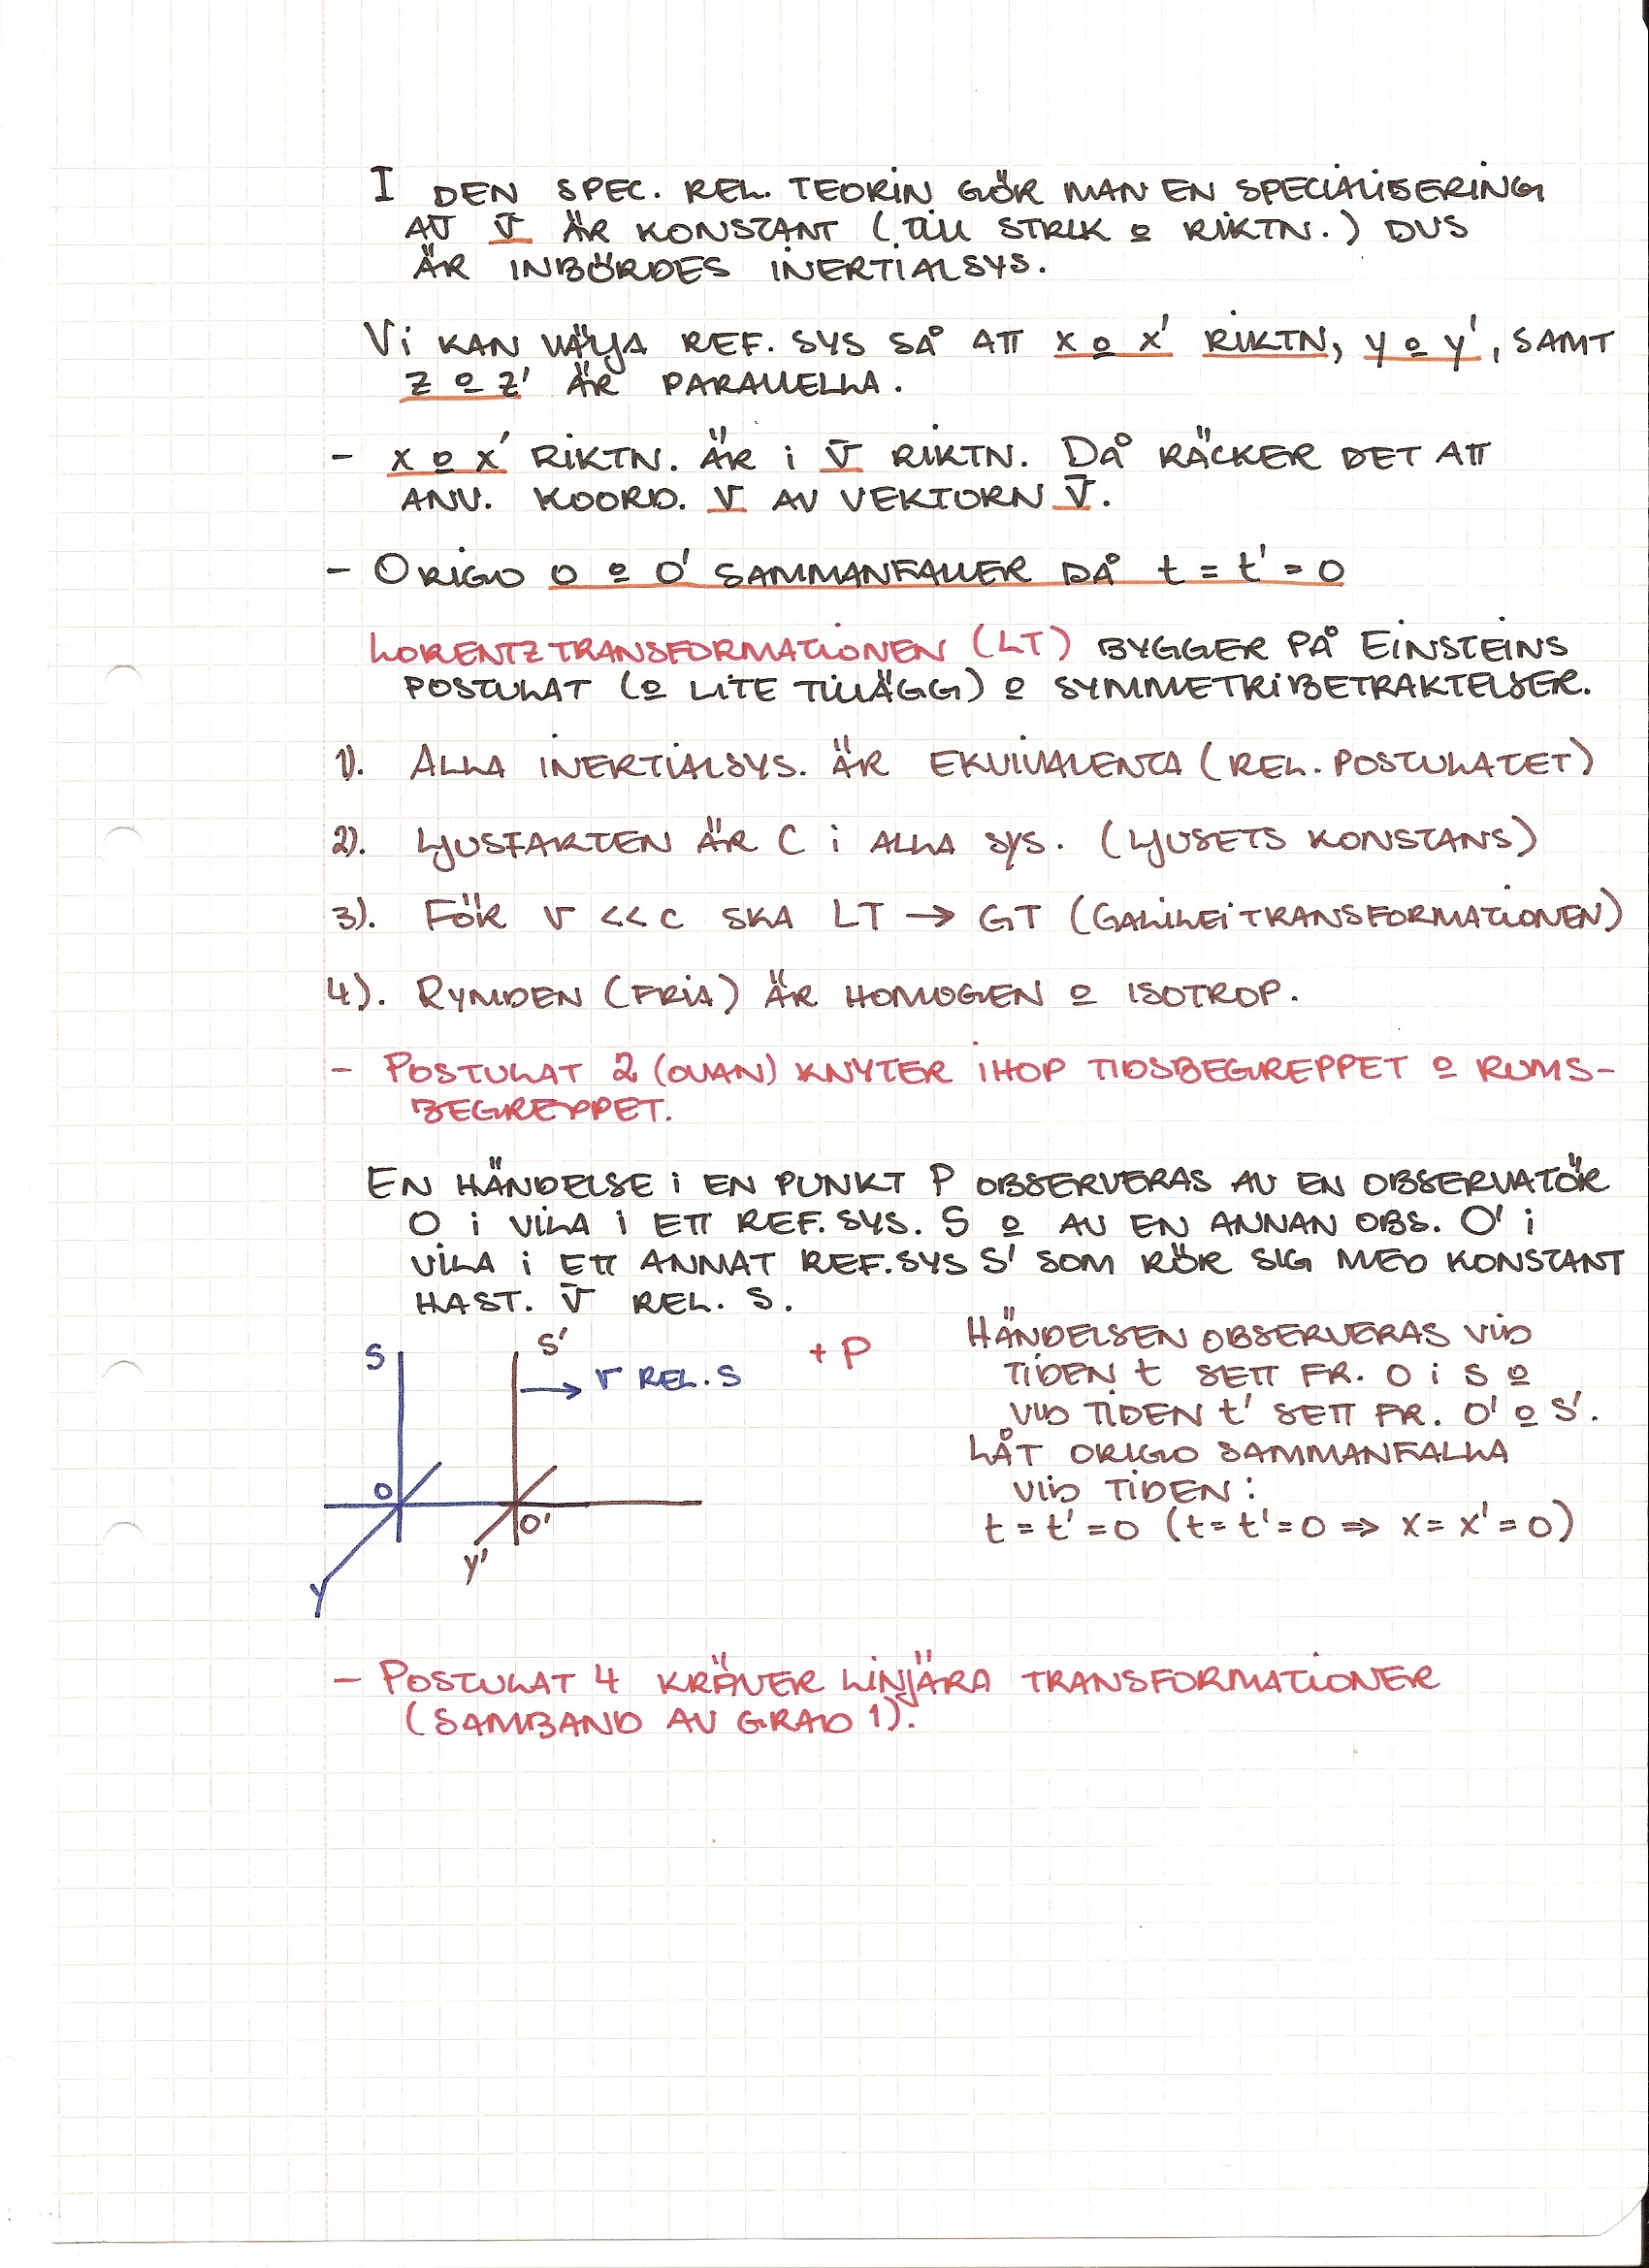 I DEN SPEC. REL. TEORIN GÖR MAN EN SPECIALISERING
ATT v̄ ÄR KONSTANT (TILL STRLK o RIKTN.) DVS
ÄR INBÖRDES INERTIALSYS.
VI KAN VÄLJA REF. SYS SÅ ATT x o x' RIKTN, y o y', SAMT
z o z' ÄR PARALLELLA.
- x o x' RIKTN. ÄR I v̄ RIKTN. DÅ RÄCKER DET ATT
ANV. KOORD. v AV VEKTORN v̄.
- ORIGO O o O' SAMMANFALLER DÅ t = t' = 0
LORENTZTRANSFORMATIONEN (LT) BYGGER PÅ EINSTEINS
POSTULAT (o LITE TILLÄGG) o SYMMETRIBETRAKTELSER.
1). ALLA INERTIALSYS. ÄR EKVIVALENTA (REL. POSTULATET)
2). LJUSFARTEN ÄR C I ALLA SYS. (LJUSETS KONSTANS)
3). FÖR v << c SKA LT → GT (GALILEITRANSFORMATIONEN)
4). RYMDEN (FRIA) ÄR HOMOGEN o ISOTROP.
- POSTULAT 2 (OVAN) KNYTER IHOP TIDSBEGREPPET o RUMS-
BEGREPPET.
EN HÄNDELSE I EN PUNKT P OBSERVERAS AV EN OBSERVATÖR
O I VILA I ETT REF. SYS. S o AV EN ANNAN OBS. O' I
VILA I ETT ANNAT REF.SYS S' SOM RÖR SIG MED KONSTANT
HAST. v̄ REL. S.
S
S'
+ P
v REL. S
O
O'
y'
y
HÄNDELSEN OBSERVERAS VID
TIDEN t SETT FR. O I S o
VID TIDEN t' SETT FR. O' o S'.
LÅT ORIGO SAMMANFALLA
VID TIDEN:
t = t' = 0 (t = t' = 0 ⇒ x = x' = 0)
- POSTULAT 4 KRÄVER LINJÄRA TRANSFORMATIONER
(SAMBAND AV GRAD 1).